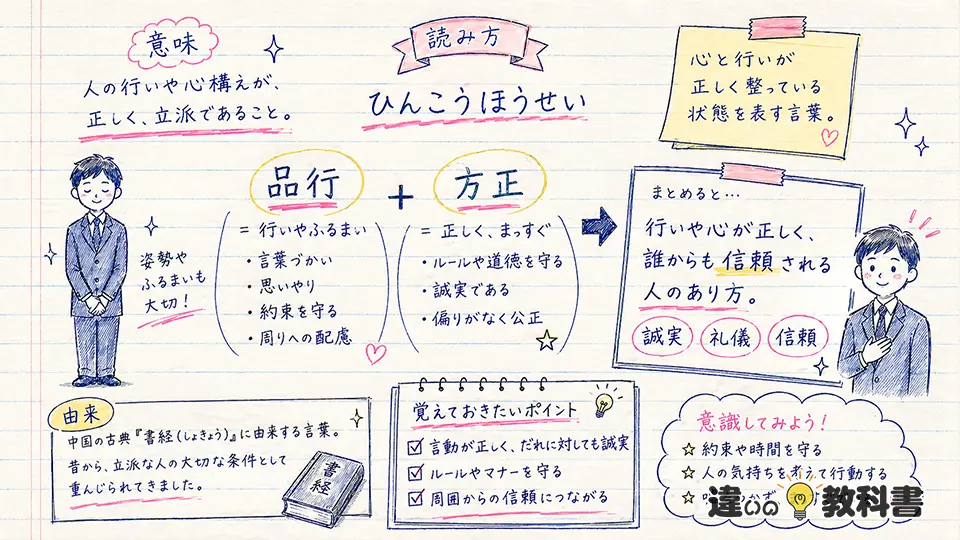 意味
人の行いや心構えが、
正しく、立派であること。
読み方
ひんこうほうせい
心と行いが
正しく整っている
状態を表す言葉。
姿勢や
ふるまいも
大切!
品行
= 行いやふるまい
・言葉づかい
・思いやり
・約束を守る
・周りへの配慮
+
方正
= 正しく、まっすぐ
・ルールや道徳を守る
・誠実である
・偏りがなく公正
まとめると…
行いや心が正しく、
誰からも信頼される
人のあり方。
誠実 礼儀 信頼
由来
中国の古典『書経(しょきょう)』に由来する言葉。
昔から、立派な人の大切な条件として
重んじられてきました。
書経
覚えておきたいポイント
言動が正しく、だれに対しても誠実
ルールやマナーを守る
周囲からの信頼につながる
意識してみよう!
☆ 約束や時間を守る
☆ 人の気持ちを考えて行動する
違いの教科書